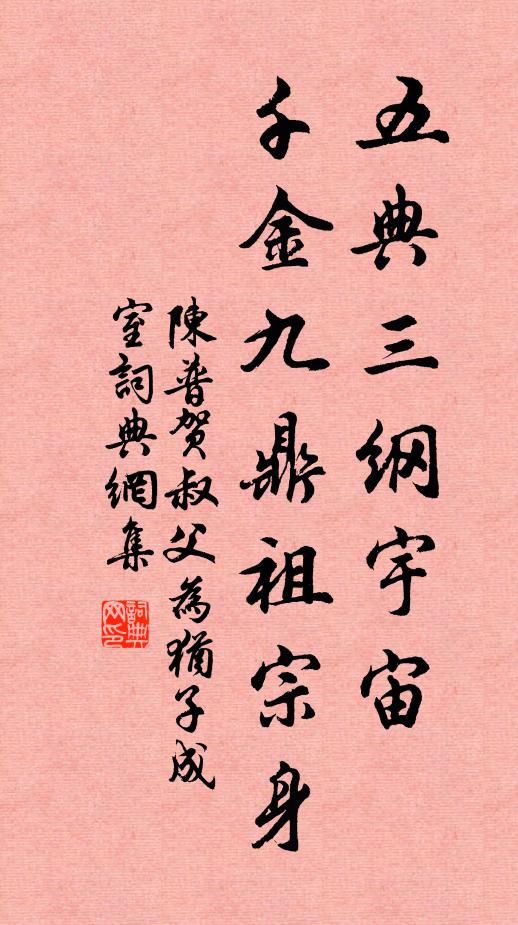 五典三纲宇宙
千金九鼎祖宗身
陳普賀叔父為猶子成
室詞典網集
詞典网印